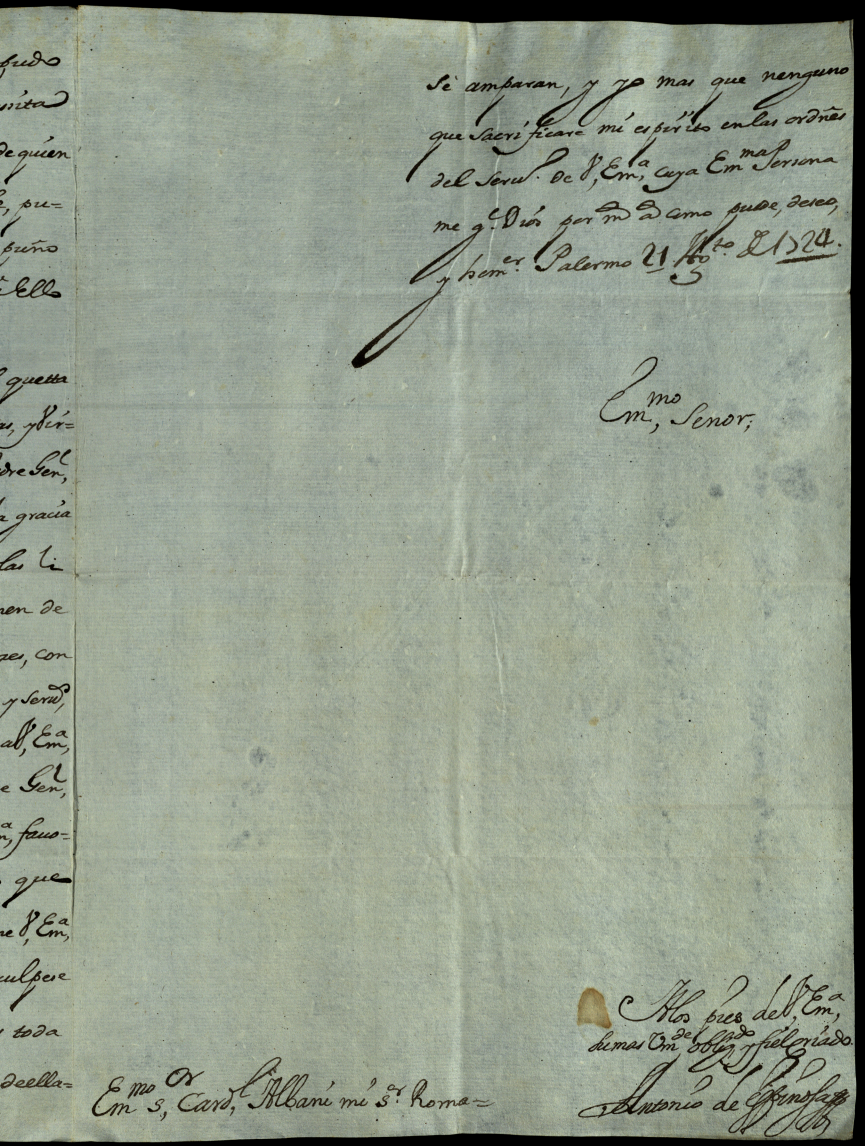 pudo
de quien
pu=
puño
Ello
quetta
as, y Vir=
dre Gen.l
a gracia
las li
nen de
con
y seru.d,
a V, Em.a,
e Gen.l,
fauo=
que
V, Em.a,
culpese
toda
deella=
Sé amparan, y yo mas que nenguno
que sacrificare mi espirito en las ordñes
del seru.o De V, Em.a, cuya Em.ma Persona
me g.e Dios por m.s a.s como puede, deseo,
y hem.er Palermo 21 Ag.to de 1724.
Em.mo, Senor,
A los pies de V, Em.a,
su mas Vm.de oblig.do y fiel criado
Antonio de Espinosa
Em.mo S.or, Card.l Albani mi S.r Roma=